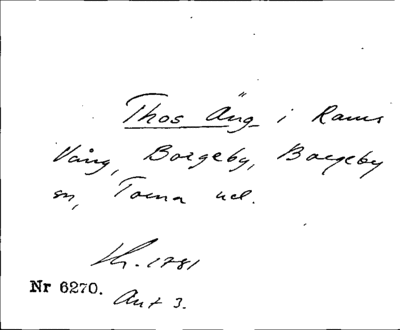 Thos Äng i Rams
Vång, Borgeby, Borgeby
sn, Torna hd.
Kr. 1781
Nr 6270.
Akt 3.